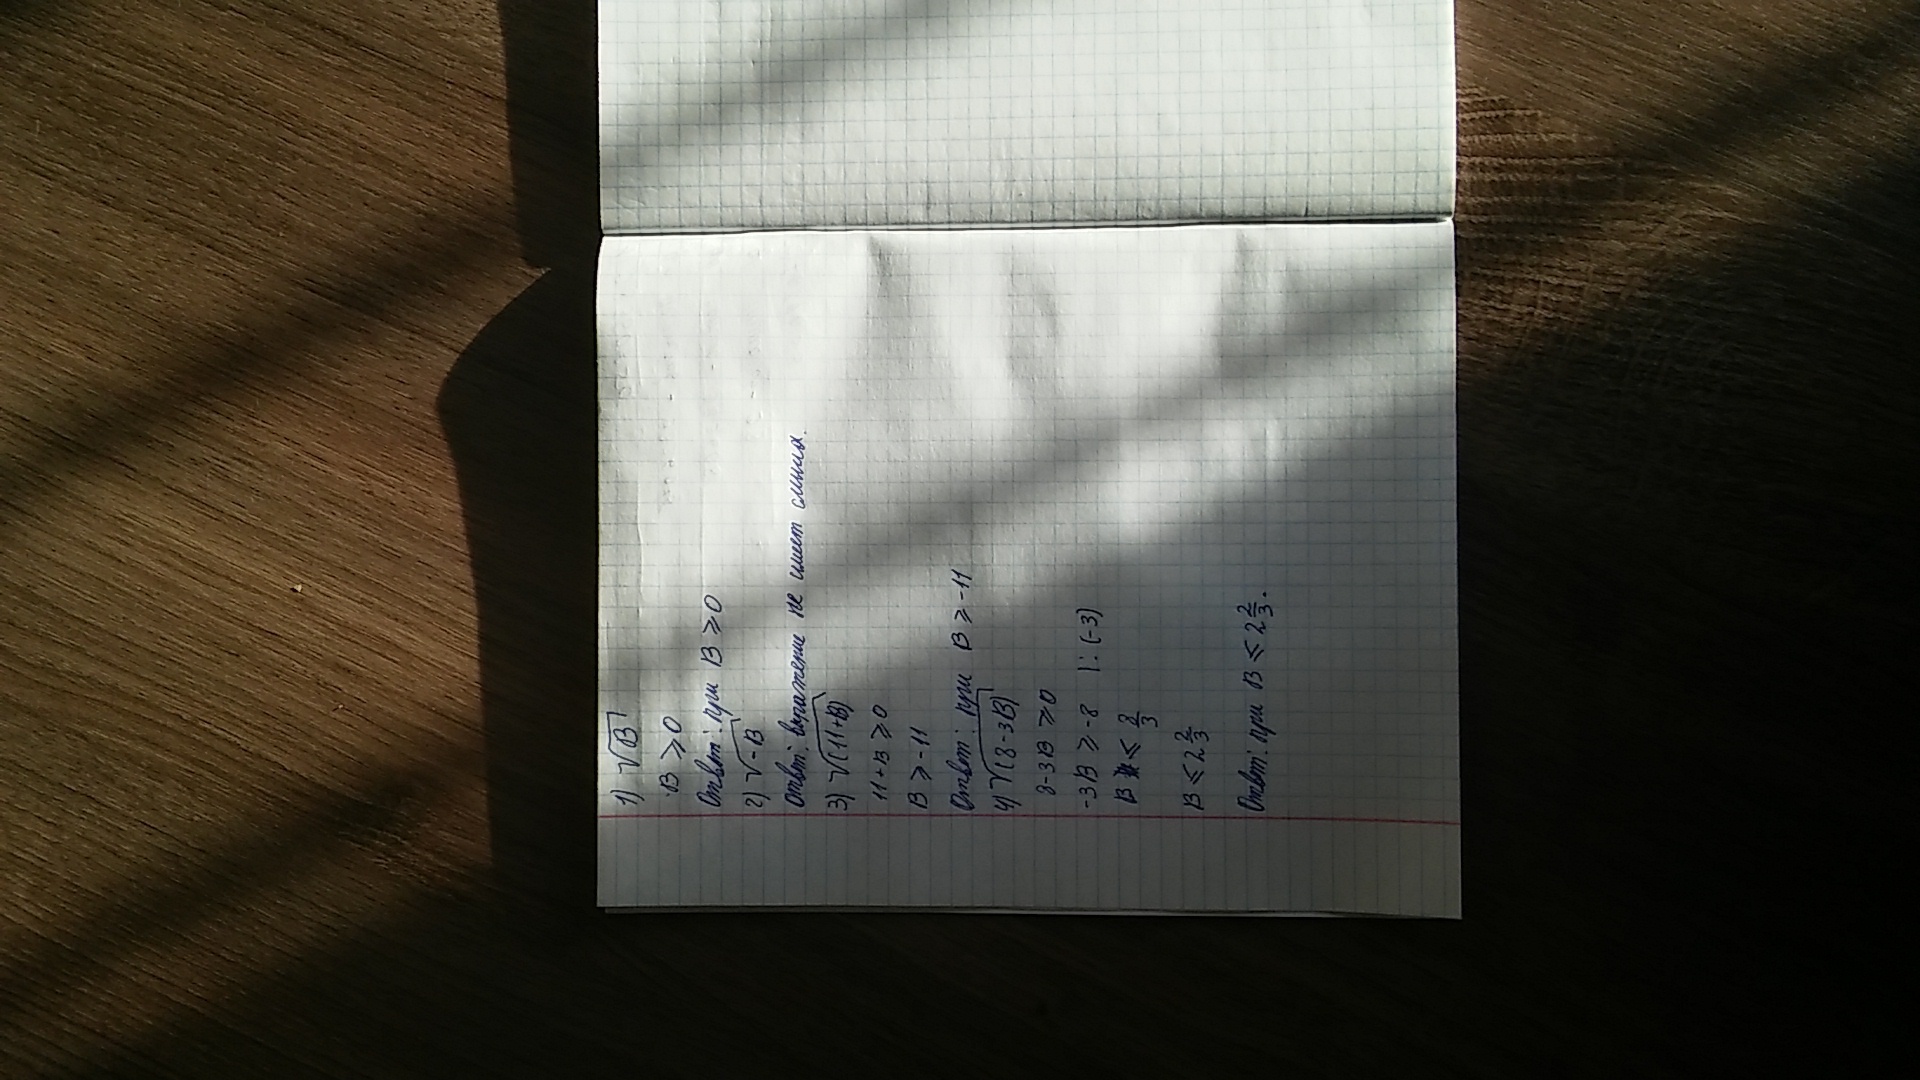 1) √B
B ≥ 0
Ответ: при B ≥ 0
2) √-B
Ответ: выражение не имеет смысла.
3) √(11+B)
11+B ≥ 0
B ≥ -11
Ответ: при B ≥ -11
4) √(8-3B)
8-3B ≥ 0
-3B ≥ -8 |:(-3)
B ≤ 8/3
B ≤ 2 2/3
Ответ: при B ≤ 2 2/3.